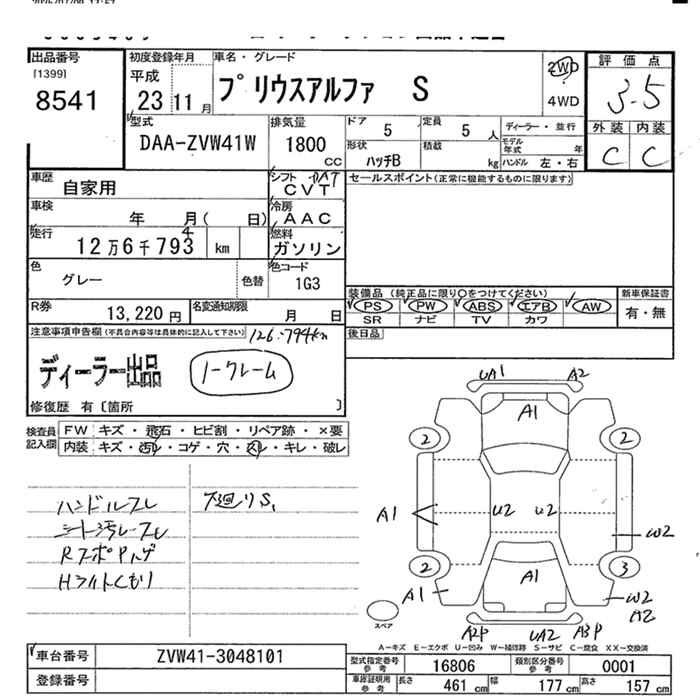 出品番号
[1399]
8541
初度登録年月
平成
23 11 月
車名・グレード
プリウスアルファ S
2WD
4WD
評価点
3.5
外装 内装
C C
型式
DAA-ZVW41W
排気量
1800
CC
ドア 5 定員 5 人
形状 ハッチB 積載 kg
ディーラー・並行
モデル年式 年
ハンドル 左・右
車歴 自家用
シフト DAT
CVT
セールスポイント(正常に機能するものに限ります)
車検 年 月( 日)
冷房 AAC
走行 12万6千793 km
4
燃料 ガソリン
色 グレー 色替
色コード 1G3
装備品 (純正品に限り○をつけてください)
PS PW ABS エアB AW
SR ナビ TV カワ
新車保証書
有・無
R券 13,220 円
名変通知期限 月 日
後日品
注意事項申告欄(不具合内容等は具体的に記入して下さい)
126.794km
ディーラー出品
ノークレーム
修復歴 有〔箇所 〕
検査員記入欄
FW キズ・飛石・ヒビ割・リペア跡・×要
内装 キズ・汚れ・コゲ・穴・スレ・キレ・破レ
ハンドルスレ
シート汚レスレ
RスポPハゲ
HライトくもりI
下廻りS,
UA1 A2
A1
2 2
A1 U2 U2 W2
2 3
A1 A1 W2
A2
A2P UA2 A3P
スペア
A-キズ E-エクボ U-凹み W-補修跡 S-サビ C-腐食 XX-交換済
車台番号 ZVW41-3048101
登録番号
型式指定番号 参考 16806 類別区分番号 参考 0001
車庫証明用 参考 長さ 461 cm 幅 177 cm 高さ 157 cm